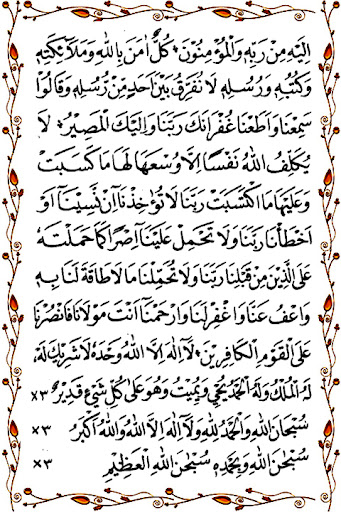 اِلَيْهِ مِنْ رَبِّهٖ وَالْمُؤْمِنُوْنَ، كُلٌّ اٰمَنَ بِاللّٰهِ وَمَلَآئِكَتِهٖ
وَكُتُبِهٖ وَرُسُلِهٖ لَا نُفَرِّقُ بَيْنَ اَحَدٍ مِنْ رُسُلِهٖ وَقَالُوْا
سَمِعْنَا وَاَطَعْنَا غُفْرَانَكَ رَبَّنَا وَاِلَيْكَ الْمَصِيْرُ، لَا
يُكَلِّفُ اللّٰهُ نَفْسًا اِلَّا وُسْعَهَا لَهَا مَا كَسَبَتْ
وَعَلَيْهَا مَا اكْتَسَبَتْ رَبَّنَا لَا تُؤَاخِذْنَآ اِنْ نَسِيْنَآ اَوْ
اَخْطَأْنَا رَبَّنَا وَلَا تَحْمِلْ عَلَيْنَآ اِصْرًا كَمَا حَمَلْتَهٗ
عَلَى الَّذِيْنَ مِنْ قَبْلِنَا رَبَّنَا وَلَا تُحَمِّلْنَا مَا لَا طَاقَةَ لَنَا بِهٖ
وَاعْفُ عَنَّا وَاغْفِرْ لَنَا وَارْحَمْنَآ اَنْتَ مَوْلَانَا فَانْصُرْنَا
عَلَى الْقَوْمِ الْكَافِرِيْنَ، لَآ اِلٰهَ اِلَّا اللّٰهُ وَحْدَهٗ لَا شَرِيْكَ لَهٗ،
لَهُ الْمُلْكُ وَلَهُ الْحَمْدُ يُحْيِيْ وَيُمِيْتُ وَهُوَ عَلٰى كُلِّ شَيْئٍ قَدِيْرٌ ×٣
سُبْحَانَ اللّٰهِ وَالْحَمْدُ لِلّٰهِ وَلَآ اِلٰهَ اِلَّا اللّٰهُ وَاللّٰهُ اَكْبَرُ ×٣
سُبْحٰنَ اللّٰهِ وَبِحَمْدِهٖ سُبْحٰنَ اللّٰهِ الْعَظِيْمِ ×٣